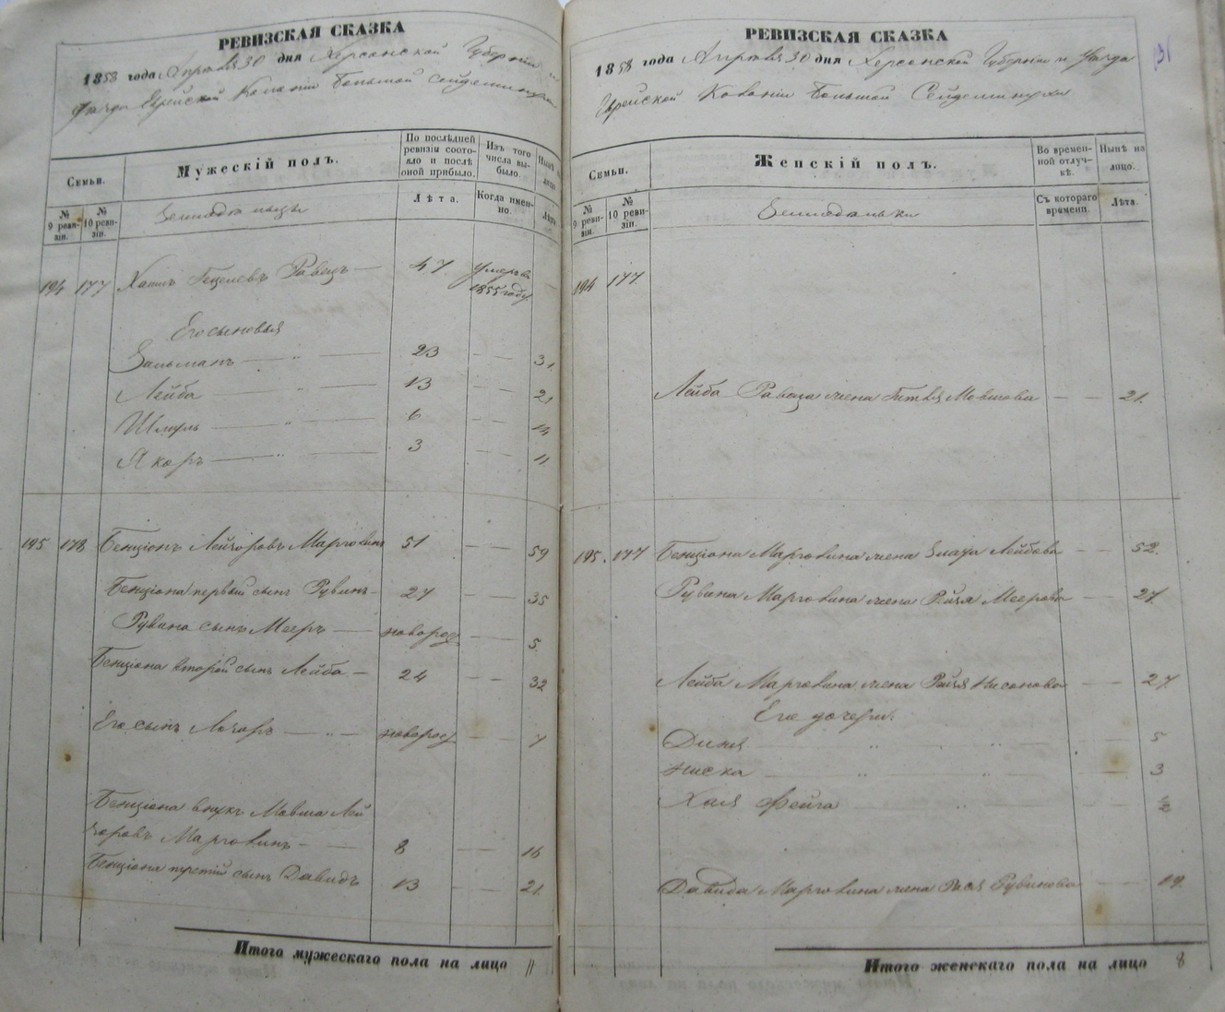 РЕВИЗСКАЯ СКАЗКА
1858 года Апреля 30 дня Херсонской Губерніи и
Уезда Еврейской Колоніи Большой Сейдеминухи
Семьи.
Мужескій полъ.
По послѣдней ревизіи состояло и послѣ оной прибыло.
Изъ того числа выбыло.
Нынѣ
№ 9 ревизіи.
№ 10 ревизіи.
Лѣта.
Когда именно.
Лѣта
194 177 Гецелевъ 47 Умеръ въ 1855 году
Его сыновья
Зальманъ — „ — 23 — — 31
Лейба — 13 — — 21
Шмуль — „ — 6 — — 14
3 — — 11
195 178 Бенціонъ Марговинъ 51 — — 59
Бенціона первый сынъ Рувинъ — 27 — — 35
Рувина сынъ Мееръ — новорож. — 5
Бенціона второй сынъ Лейба — 24 — — 32
Его сынъ Лазарь — „ — новорож. — 7
Бенціона внукъ Мовша Лей
зоровъ Марговинъ — — 8 — — 16
Бенціона третій сынъ Давидъ 13 — — 21.
Итого мужескаго пола на лицо 11
РЕВИЗСКАЯ СКАЗКА
1858 года Апреля 30 дня Херсонской Губерніи и Уезда
Еврейской Колоніи Большой Сейдеминухи
131
Семьи.
Женскій полъ.
Во временной отлучкѣ.
Нынѣ на лицо.
№ 9 ревизіи.
№ 10 ревизіи.
Съ котораго времени.
Лѣта.
194 177.
Лейба жена Мовшова — — 21.
195. 177 Бенціона Марговина жена Злата Лейбова — — 52.
Рувина Марговина жена Меерова — — 27.
Лейба Марговина жена Нисонова — — 27.
Его дочери:
5
3
Хая Фейга 2
Давида Марговина жена Рася Рувинова — — 19.
Итого женскаго пола на лицо 8